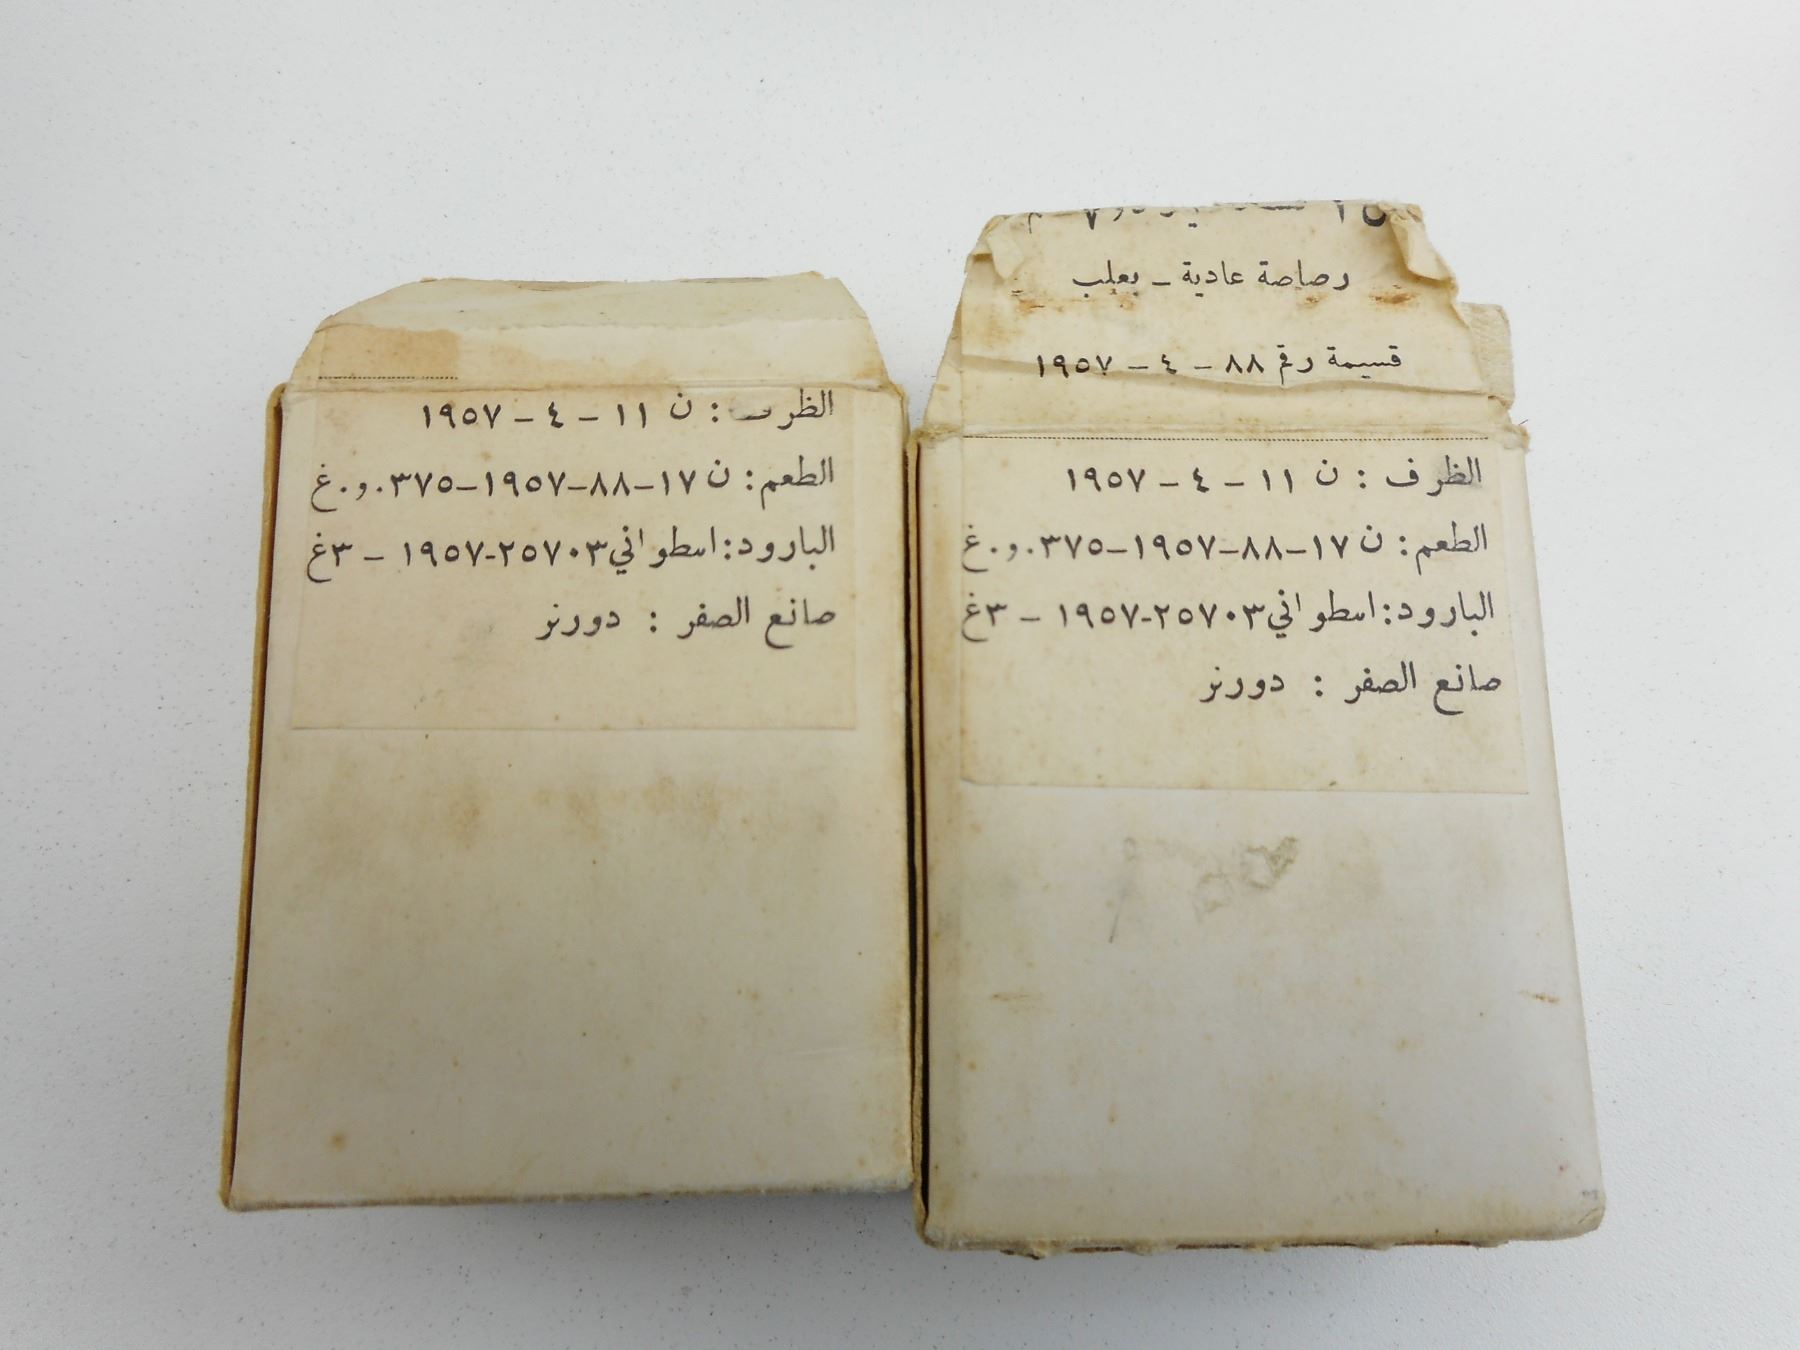 الظرف : ن ١١ – ٤ – ١٩٥٧
الطعم : ن ١٧–٨٨–١٩٥٧–٣٧٥.و.غ
البارود : اسطواني ٢٥٧٠٣-١٩٥٧ – ٣غ
صانع الصفر : دورنز
رصاصة عادية – بعلب
قسيمة رقم ٨٨ – ٤ – ١٩٥٧
الظرف : ن ١١ – ٤ – ١٩٥٧
الطعم : ن ١٧–٨٨–١٩٥٧–٣٧٥.و.غ
البارود : اسطواني ٢٥٧٠٣-١٩٥٧ – ٣غ
صانع الصفر : دورنز